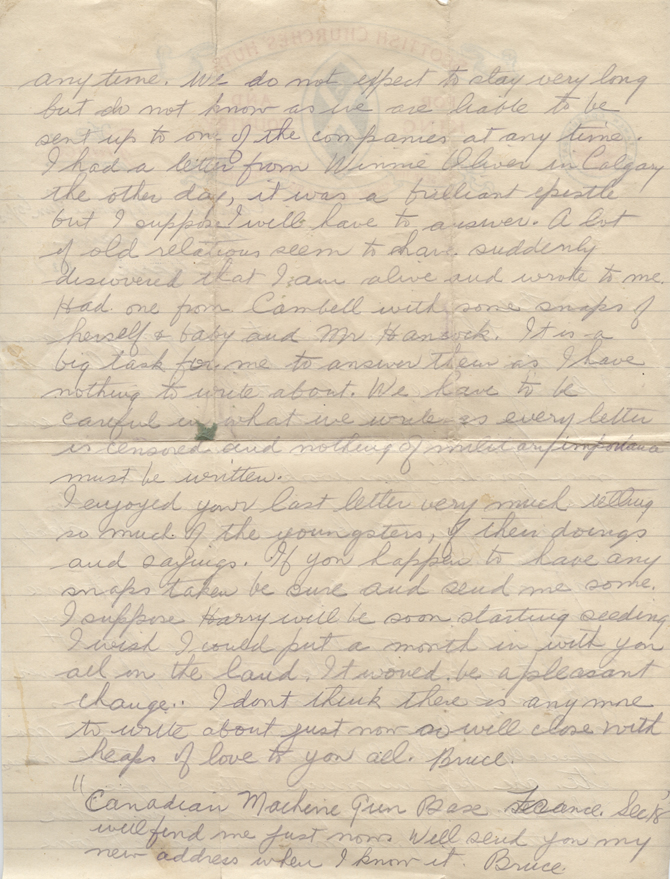 any time. We do not expect to stay very long
but do not know as we are liable to be
sent up to one of the companies at any time.
I had a letter from Winnie Oliver in Calgary
the other day, it was a brilliant epistle
but I suppose I will have to answer. A lot
of old relations seem to have suddenly
discovered that I am alive and wrote to me.
Had one from Cambell with some snaps of
herself & baby and Mr Hancock. It is a
big task for me to answer them as I have
nothing to write about. We have to be
careful in what we write as every letter
is censored and nothing of military importance
must be written.
I enjoyed your last letter very much telling
so much of the youngsters, of their doings
and sayings. If you happen to have any
snaps taken be sure and send me some.
I suppose Harry will be soon starting seeding
I wish I could put a month in with you
all on the land. It would be a pleasant
change. I dont think there is any more
to write about just now so will close with
heaps of love to you all. Bruce.
"Canadian Machine Gun Base France.
will find me just now Will send you my
new address when I know it. Bruce